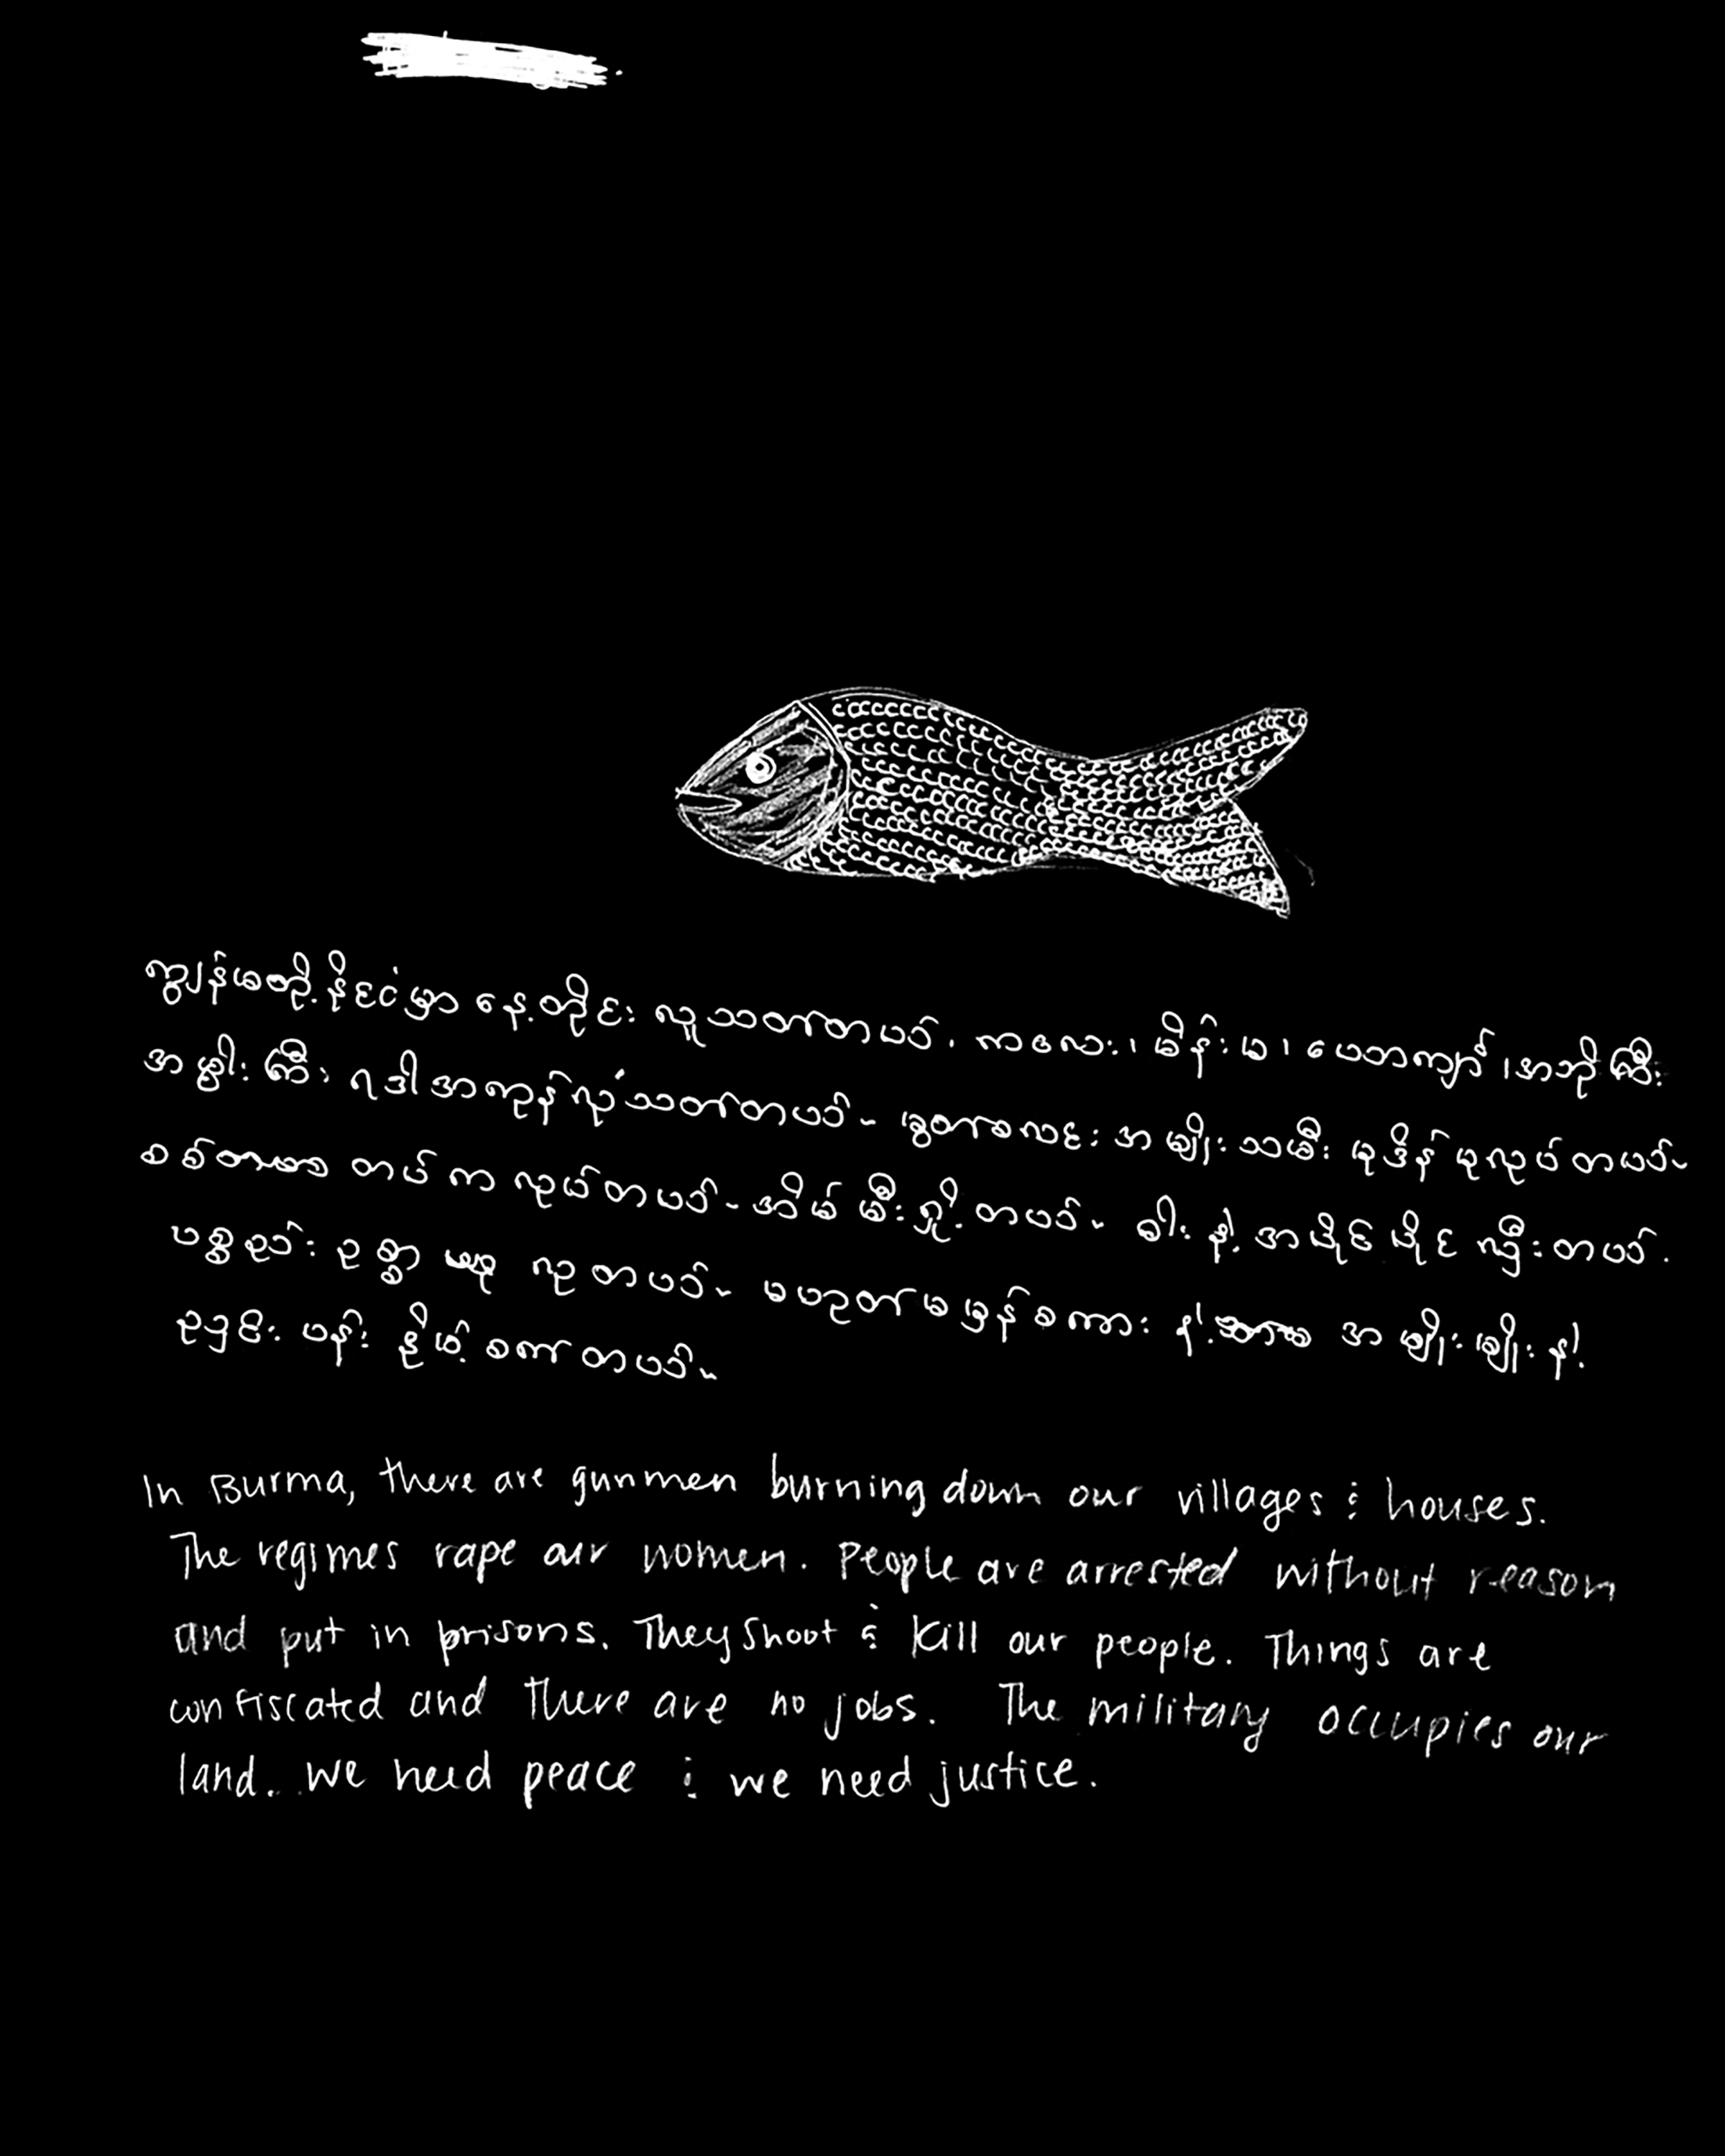 ကျွန်မတို့နိုင်ငံမှာ နေ့တိုင်း လူသတ်တယ်၊ ကလေး၊ မိန်းမ၊ ယောကျာ်၊ အဘိုကြီး
အမွှါးကြီး၊ ရဒါအကုန်လုံးသတ်တယ်။ အမျိုးသမီး မုဒိန်မုလုပ်တယ်။
စစ် တပ်က လုယ်တယ်။ အိမ်မီးရှို့တယ်။ ဓါးနဲ့ လှီးတယ်။
ပစ္စည်းဥစ္စာ လုတယ်။ အမျိုးမျိုးနဲ့
ညှင်းပန်း နှိမ့်စက်တယ်။
In Burma, there are gunmen burning down our villages & houses.
The regimes rape our women. People are arrested without reason
and put in prisons. They shoot & kill our people. Things are
confiscated and there are no jobs. The military occupies our
land. We need peace & we need justice.